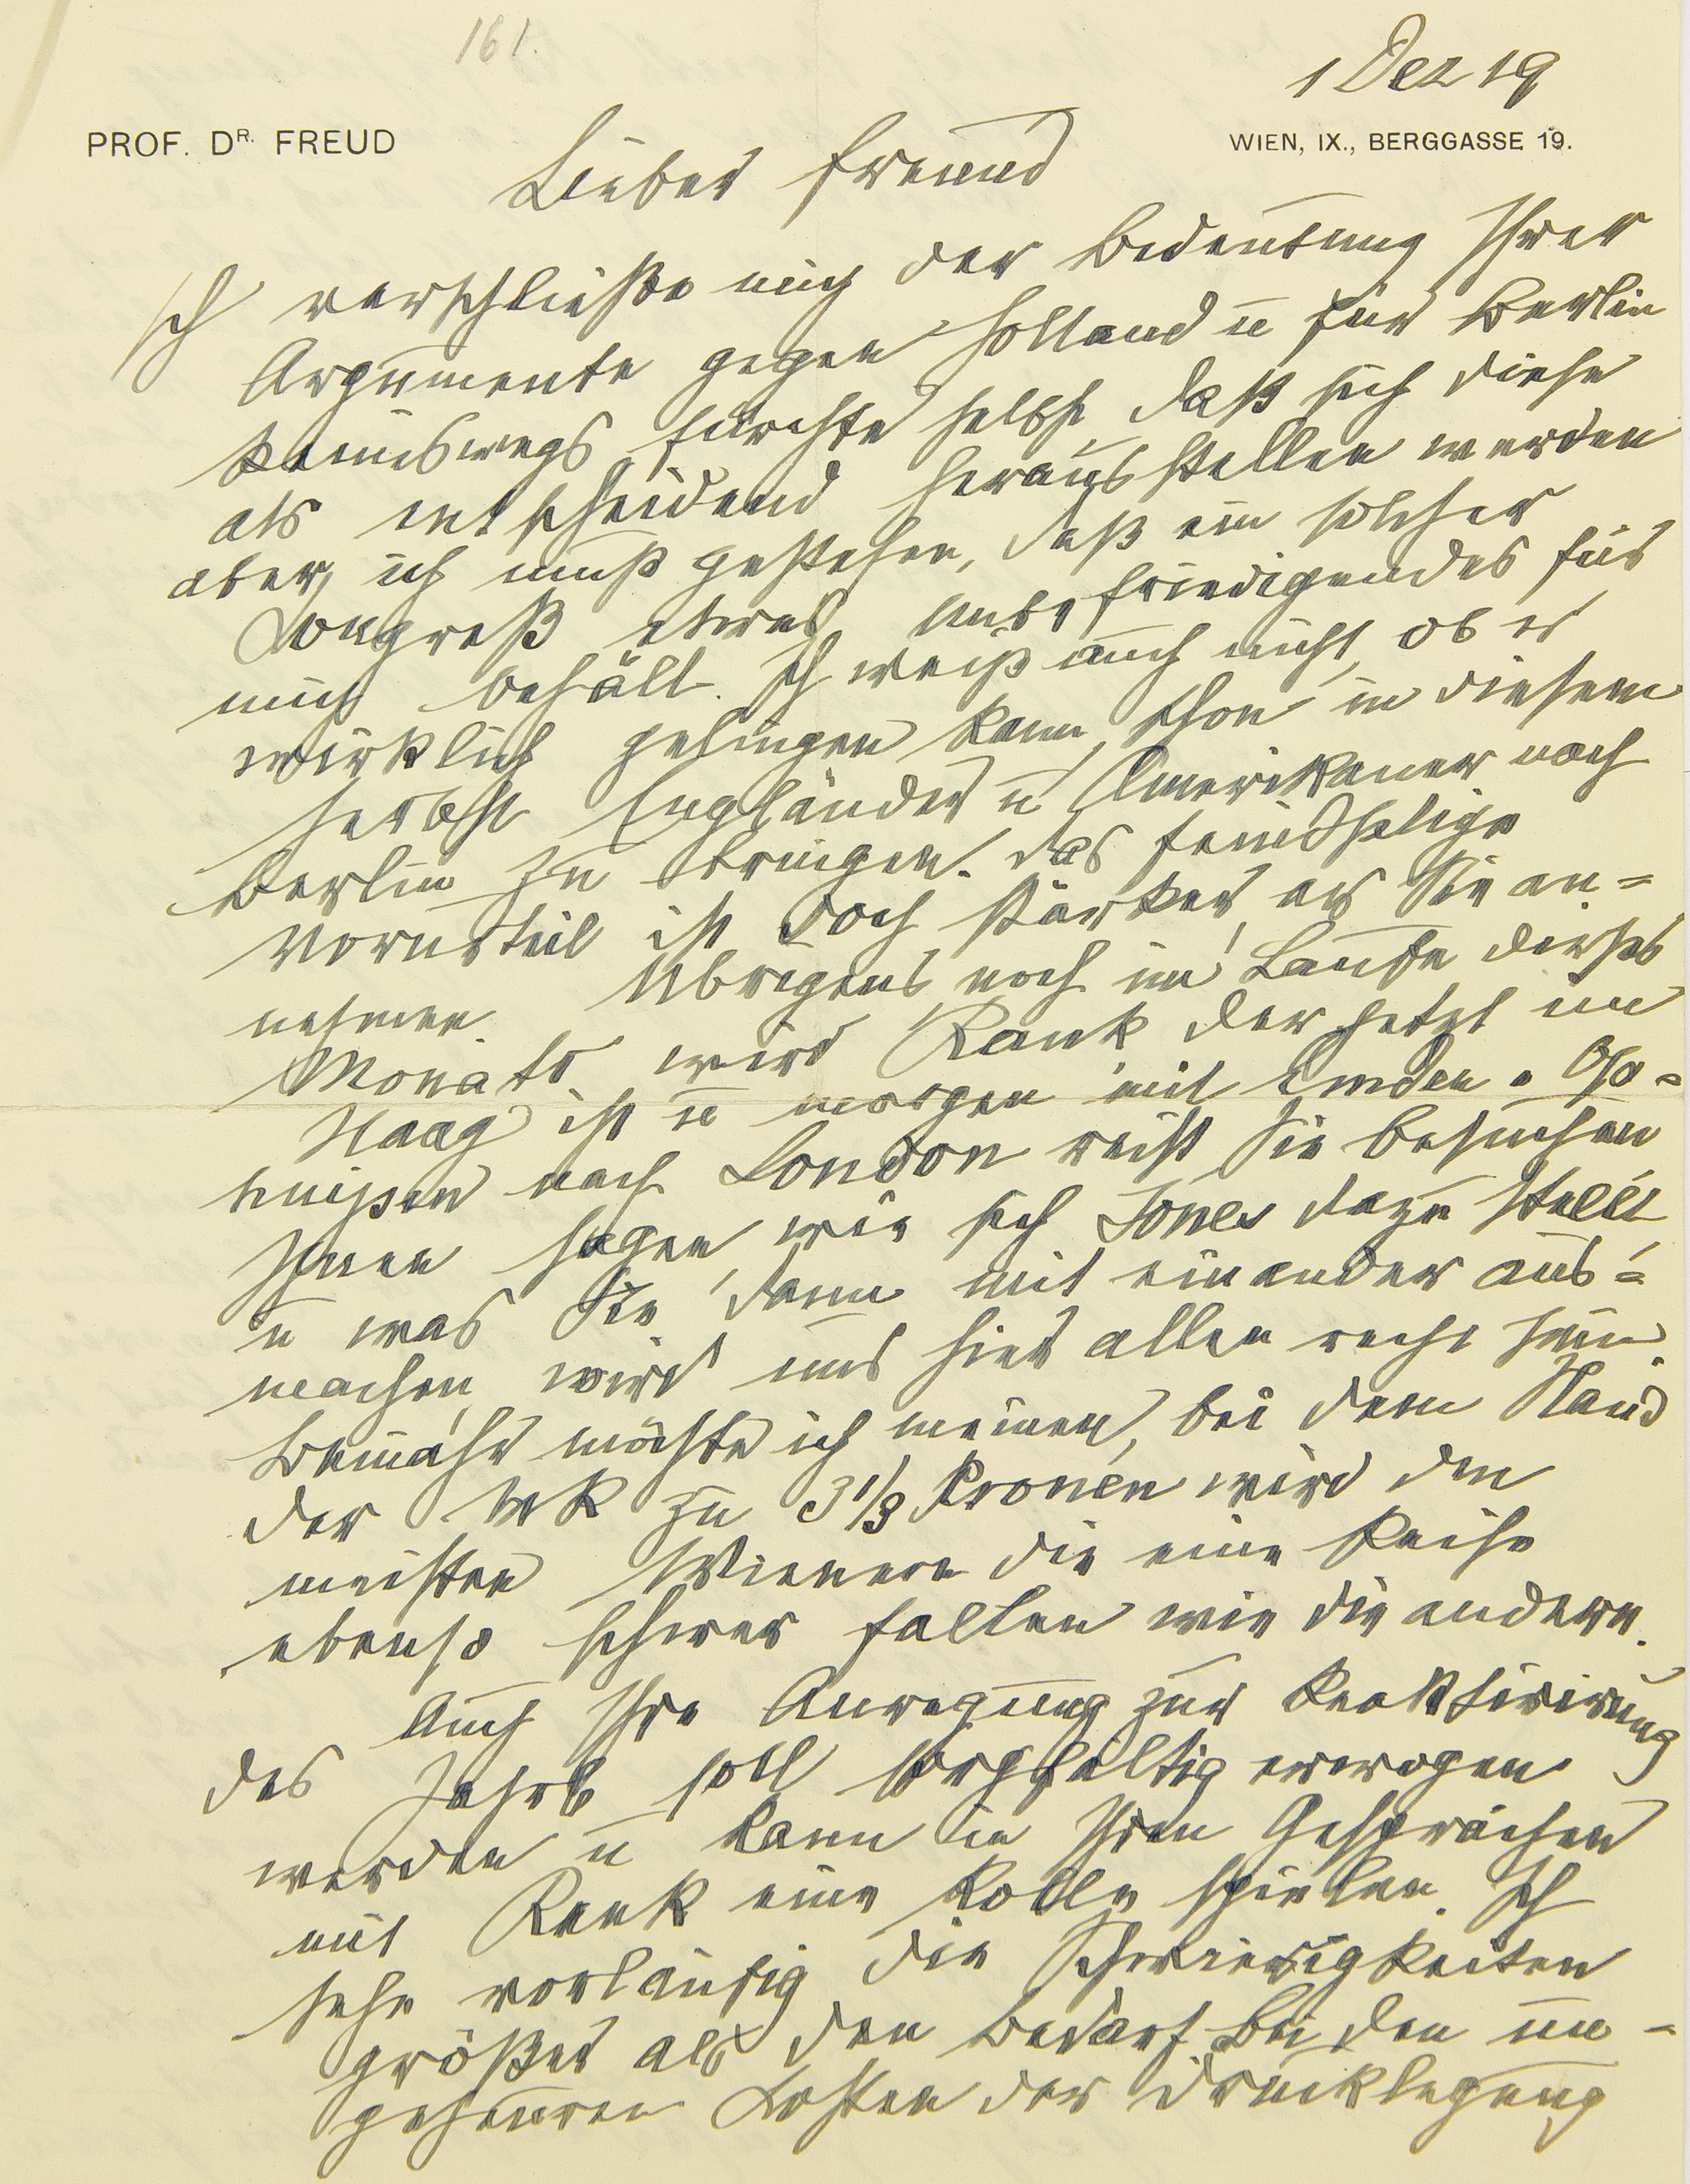 161.
1 Dez 19
PROF. DR. FREUD
WIEN, IX., BERGGASSE 19.
Lieber Freund
Ich verschließe mich der Bedeutung Ihrer
Argumente gegen Holland u für Berlin
keineswegs, fürchte selbst, daß sich diese
als entscheidend herausstellen werden
aber, ich muß gestehen, daß ein solcher
Kongreß etwas Unbefriedigendes für
mich behält. Ich weiß auch nicht, ob es
wirklich gelingen kann, schon in diesem
Herbst Engländer u Amerikaner nach
Berlin zu bringen. Das feindselige
Vorurteil ist doch stärker, als Sie an=
nehmen. Übrigens noch im Laufe dieses
Monats wird Rank der jetzt im
Haag ist u morgen mit Emden u Op=
huijsen nach London reist Sie besuchen
Ihnen sagen, wie sich Jones dazu stellt
u was Sie dann mit einander aus=
machen, wird uns hier allen recht sein.
Beinahe möchte ich meinen, bei dem Stand
der Mk zu 3 1/3 Kronen wird den
meisten Wienern die eine Reise
ebenso schwer fallen wie die andere.
Auch Ihre Anregung zur Reaktivirung
des Jahrb soll sorgfältig erwogen
werden u kann in Ihren Gesprächen
mit Rank eine Rolle spielen. Ich
sehe vorläufig die Schwierigkeiten
größer als den Bedarf. Bei den un=
geheuren Kosten der Drucklegung